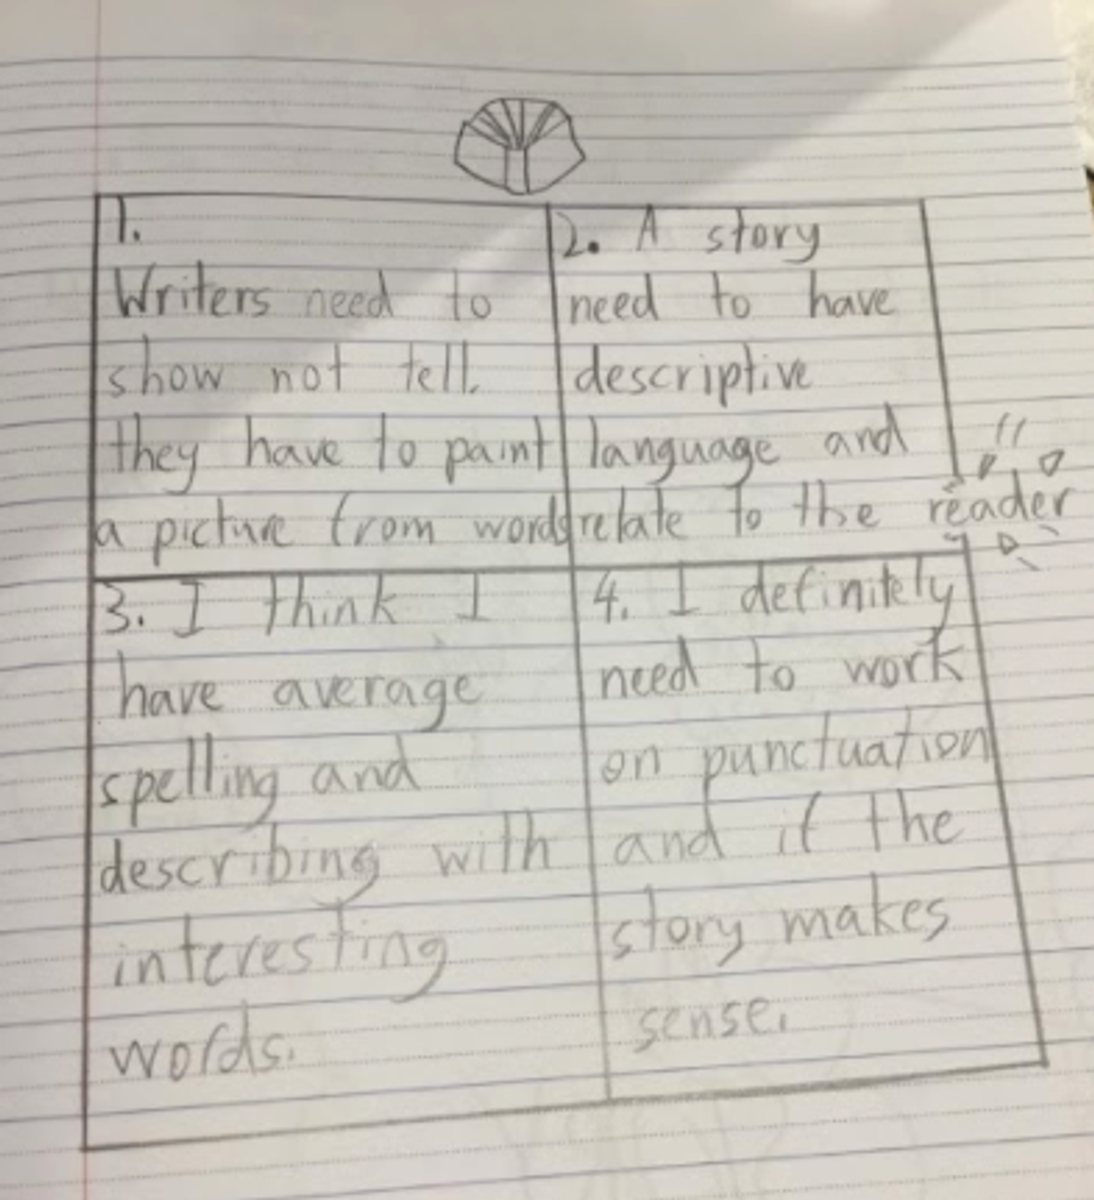 1.
Writers need to
show not tell.
they have to paint
a picture from words
2. A story
need to have
descriptive
language and
relate to the reader
3. I think I
have average
spelling and
describing with
interesting
words.
4. I definitely
need to work
on punctuation
and if the
story makes
sense.